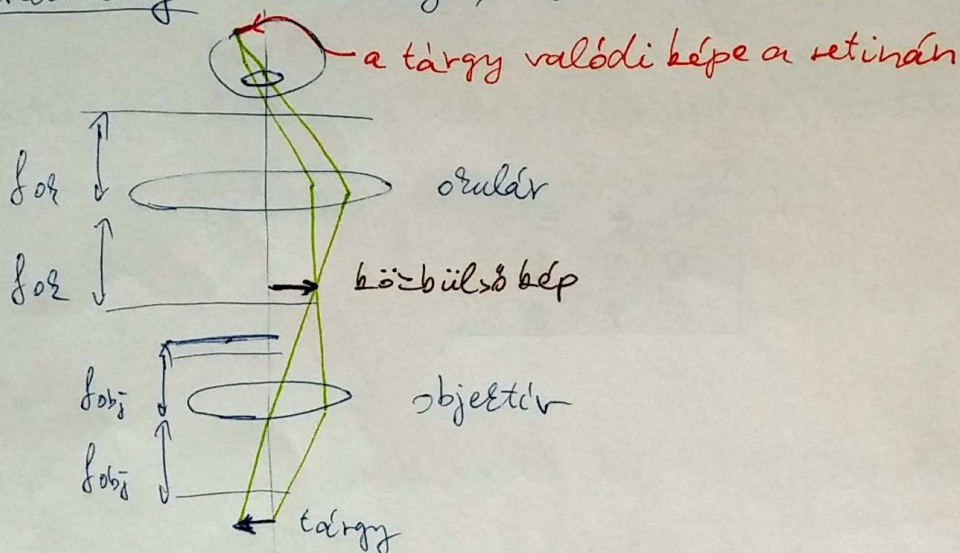 a tárgy valódi képe a retinán
fok
okulár
fok
közbülső kép
fobj
objektív
fobj
tárgy